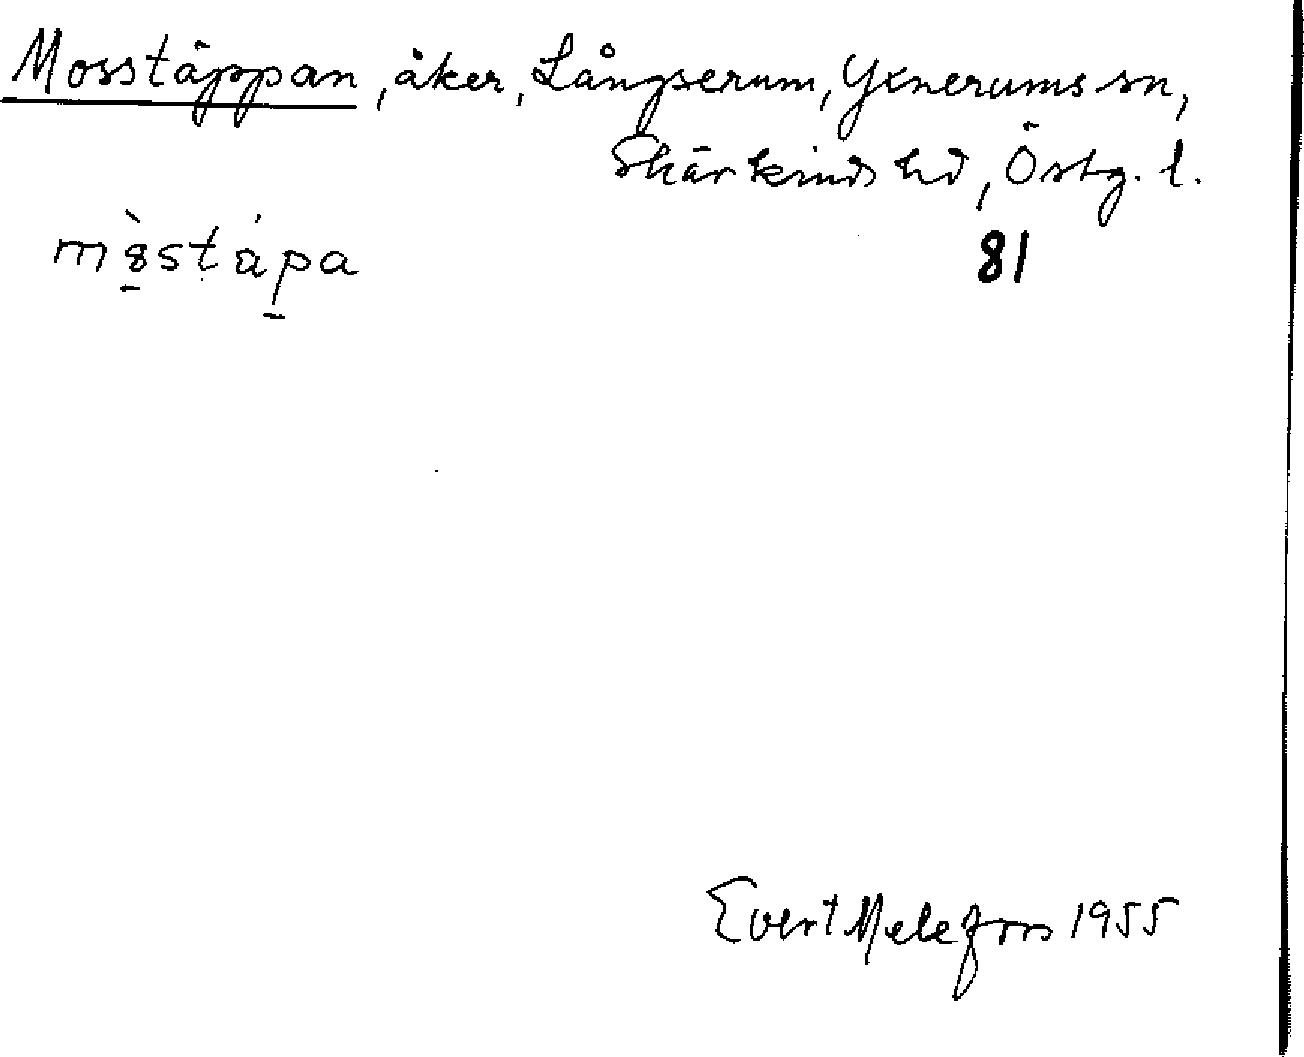 Mosstäppan, åker, Långserum, Yxnerums sn,
Skärkinds hd, Östg. l.
81
Evert Melefors 1955